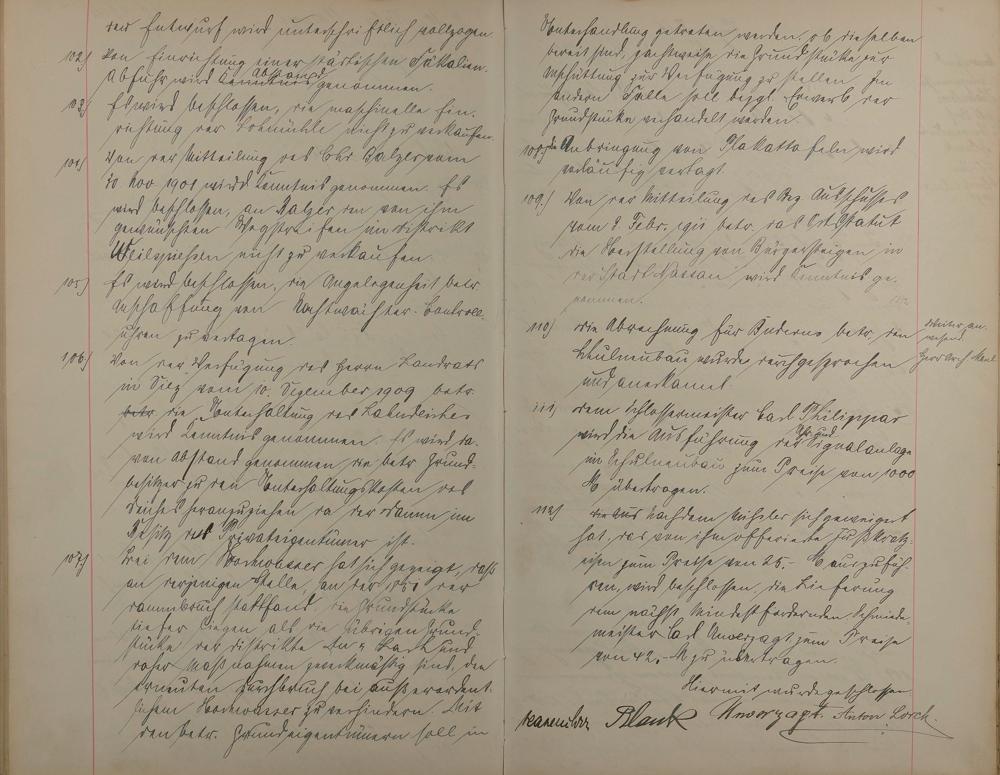 der Entwurf wird unterschriftlich vollzogen.
102) Von Einrichtung einer städtischen Fäkalien-
Abfuhr wird Kenntnis Abstand genommen.
103) Es wird beschlossen, die maschinelle Ein-
richtung der Lohmühle nicht zu verkaufen.
104) Von der Mitteilung des Chr Balzer vom
10 Nov 1901 wird Kenntnis genommen. Es
wird beschlossen, an Balzer den von ihm
gewünschten Wegstreifen im Distrikt
nicht zu verkaufen.
105) Es wird beschlossen, die Angelegenheit betr
Anschaffung von Nachtwächter-Controll-
uhren zu vertagen.
106) Von der Verfügung des Herrn Landrats
in Diez vom 10. Dezember 1909 betr.
betr die Unterhaltung des Lahndeiches
wird Kenntnis genommen. Es wird da-
von Abstand genommen die betr Grund-
besitzer zu den Unterhaltungskosten des
Deiches heranzuziehen da der Damm im
Besitz der Privateigentümer ist.
107) Bei dem Hochwasser hat sich gezeigt, daß
an derjenigen Stelle, an der der
Dammbruch stattfand, die Grundstücke
tiefer liegen als die übrigen Grund-
stücke der Distrikte und
daher Maßnahmen zweckmäßig sind, den
erneuten Durchbruch bei außerordent-
lichem Hochwasser zu verhindern. Mit
den betr. Grundeigentümern soll in
Unterhandlung getreten werden, ob dieselben
bereit sind, pachtweise die Grundstücke zur
Anschüttung zur Verfügung zu stellen. Im
andern Falle soll bezgl. Erwerb der
Grundstücke verhandelt werden.
108) Die Anbringung von Plakattafeln wird
vorläufig vertagt.
109.) Von der Mitteilung des Bez Ausschusses
vom 8 Febr. 1911 betr. das Ortsstatut
die Herstellung von Bürgersteigen in
der Stadt Nassau wird Kenntnis ge-
nommen.
110) Die Abrechnung für Buderus betr. den
Schulneubau wurde durchgesprochen
und anerkannt.
Weiter an-
wesend
Herr Arch
111) Dem Schlossermeister Carl Philippar
wird die Ausführung der Uhr und Signalanlage
im Schulneubau zum Preise von 1000
M übertragen.
112) Nachdem sich geweigert
hat, das von ihm offerierte Fußkratz-
eisen zum Preise von 25.- M auszufüh-
ren, wird beschlossen die Lieferung
dem nächst Mindestfordernden Schmiede-
meister Carl Unverzagt zum Preise
von 42.- M zu übertragen.
Hiermit wurde geschlossen
Blank Unverzagt. Anton Lorch.